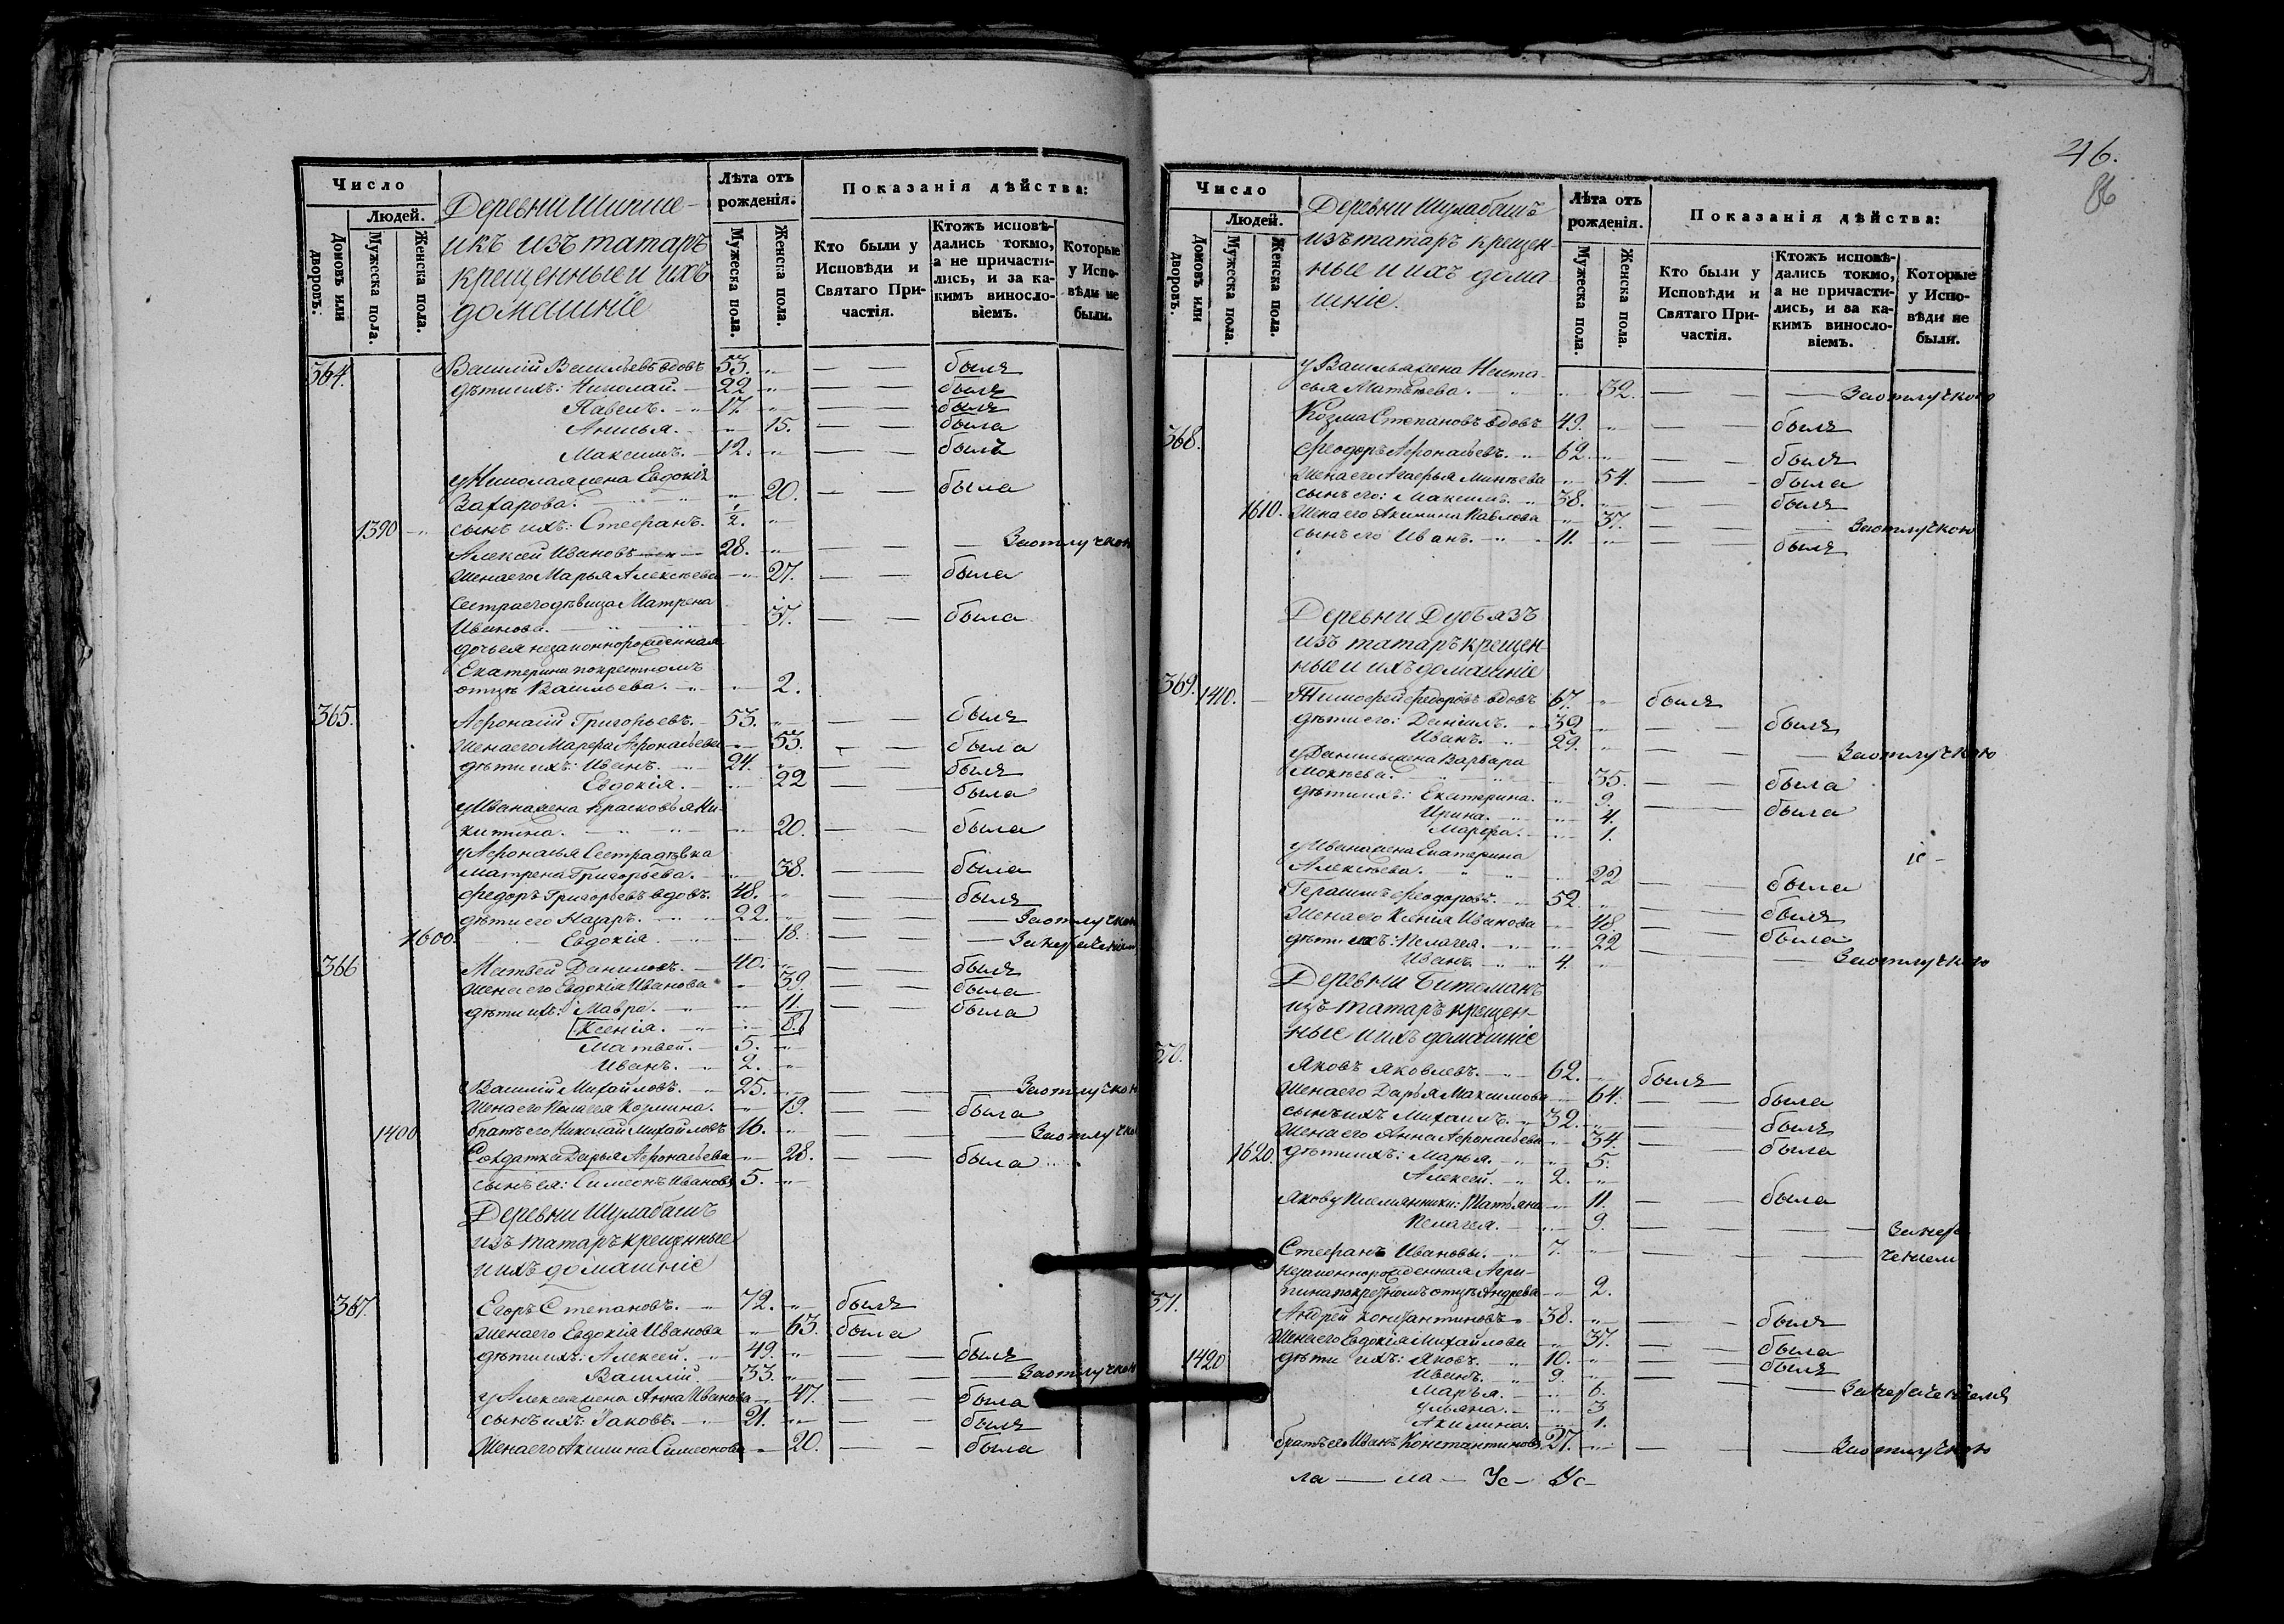 Число
Людей.
Домовъ или дворовъ.
Мужеска пола.
Женска пола.
Деревни Шипше-
икъ изъ татаръ
крещенные и ихъ
домашніе
Лѣта отъ рожденія.
Мужеска пола.
Женска пола.
Показанія дѣйства:
Кто были у Исповѣди и Святаго При-частія.
Ктожъ исповѣ-дались токмо, а не причасти-лись, и за ка-кимъ винослo-віемъ.
Которые у Испо-вѣди не были.
364. Василій Васильевъ вдовъ 53. былъ
дѣти ихъ: Николай. 22 былъ
Павелъ. 17. былъ
Анисья. 15. была
Максимъ. 12. былъ
у Николая жена Евдокія
Захарова. 20. была
1390 сынъ ихъ: Стефанъ. 1/2.
Алексей Ивановъ 28. За отлучкою
жена его Марья Алексѣева 27. была
Сестра его дѣвица Матрена
Иванова. 37. была
дочь ея незаконнорожденная
Екатерина по крестномъ
отцѣ Васильева. 2.
365. Афонасій Григорьевъ. 53. былъ
жена его Марфа Афонасьева 53. была
дѣти ихъ: Иванъ. 24. былъ
Евдокія. 22 была
у Ивана жена Прасковья Ни-
китина. 20. была
у Афонасья Сестра дѣвка
Матрена Григорьева. 38. была
Федоръ Григорьевъ вдовъ. 48. былъ
дѣти его Назаръ. 22. За отлучкою
1600. Евдокія. 18. За нераченіем
366 Матвей Даниловъ. 40. былъ
жена его Евдокія Иванова 39. была
дѣти ихъ: Мавра. 11 была
Ксенія. 8.
Матвей. 5.
Иванъ. 2.
Василій Михайловъ. 25. За отлучкою
жена его Пелагея Козмина. 19. была
1400 братъ его Николай Михайловъ 16. За отлучкою
Солдатка Дарья Афонасьева 28. была
сынъ ея: Симеонъ Ивановъ 5.
Деревни Шулабашъ
изъ татаръ крещенные
и ихъ домашніе
367. Егоръ Степановъ. 72. былъ
жена его Евдокія Иванова 63. была
дѣти ихъ: Алексей. 49. былъ
Василій. 33. За отлучкою
у Алексея жена Анна Иванова 47. была
сынъ ихъ: Іаковъ. 21. былъ
жена его Акилина Симеонова 20. была
46.
86
Число
Людей.
Домовъ или дворовъ.
Мужеска пола.
Женска пола.
Деревни Шулабашъ
изъ татаръ крещен-
ные и ихъ дома-
шніе.
Лѣта отъ рожденія.
Мужеска пола.
Женска пола.
Показанія дѣйства:
Кто были у Исповѣди и Святаго При-частія.
Ктожъ исповѣ-дались токмо, а не причасти-лись, и за ка-кимъ винослo-віемъ.
Которые у Испо-вѣди не были.
у Василья жена Наста-
сья Матвѣева. 32. За отлучкою
Козма Степановъ вдовъ 49. былъ
368. Феодоръ Афонасьевъ. 62 былъ
жена его Агафья Минѣева 54. была
сынъ его: Максимъ. 38. былъ
1610. жена его Акилина Павлова 37. За отлучкою
сынъ его Иванъ. 11. былъ
Деревни Дубъязъ
изъ татаръ крещен-
ные и ихъ домашніе
369. 1410. Тимофей Федоровъ вдовъ 67. былъ
дѣти его: Данилъ. 39 былъ
Иванъ. 29. За отлучкою
у Данилы жена Варвара
Мокѣева. 35. была
дѣти ихъ: Екатерина. 9. была
Ирина. 4.
Марфа. 1.
у Ивана жена Екатерина
Алексѣева. 22 была
Герасимъ Феодоровъ. 52. былъ
жена его Ксенія Иванова 48. была
дѣти ихъ: Пелагея. 22 За отлучкою
Иванъ. 4.
Деревни Битаманъ
изъ татаръ крещен-
ные и ихъ домашніе
370. Яковъ Яковлевъ. 62. былъ
жена его Дарья Максимова 64. была
сынъ ихъ Михаилъ. 32. былъ
жена его Анна Афонасьева 34. была
1620. дѣти ихъ: Марья. 5.
Алексей. 2.
Якову племянники: Татьяна 11. была
Пелагея. 9. За нера-
Стефанъ Ивановы. 7. ченіем
незаконнорожденная Агри-
пина по крестномъ отцѣ Андреева 2.
371. Андрей Константиновъ 38. былъ
жена его Евдокія Михайлова 37. была
1420 дѣти ихъ: Яковъ. 10. былъ
Иванъ. 9. За нераченіемъ
Марья. 6.
Ульяна. 3
Акилина. 1.
братъ его Иванъ Константиновъ 27. За отлучкою